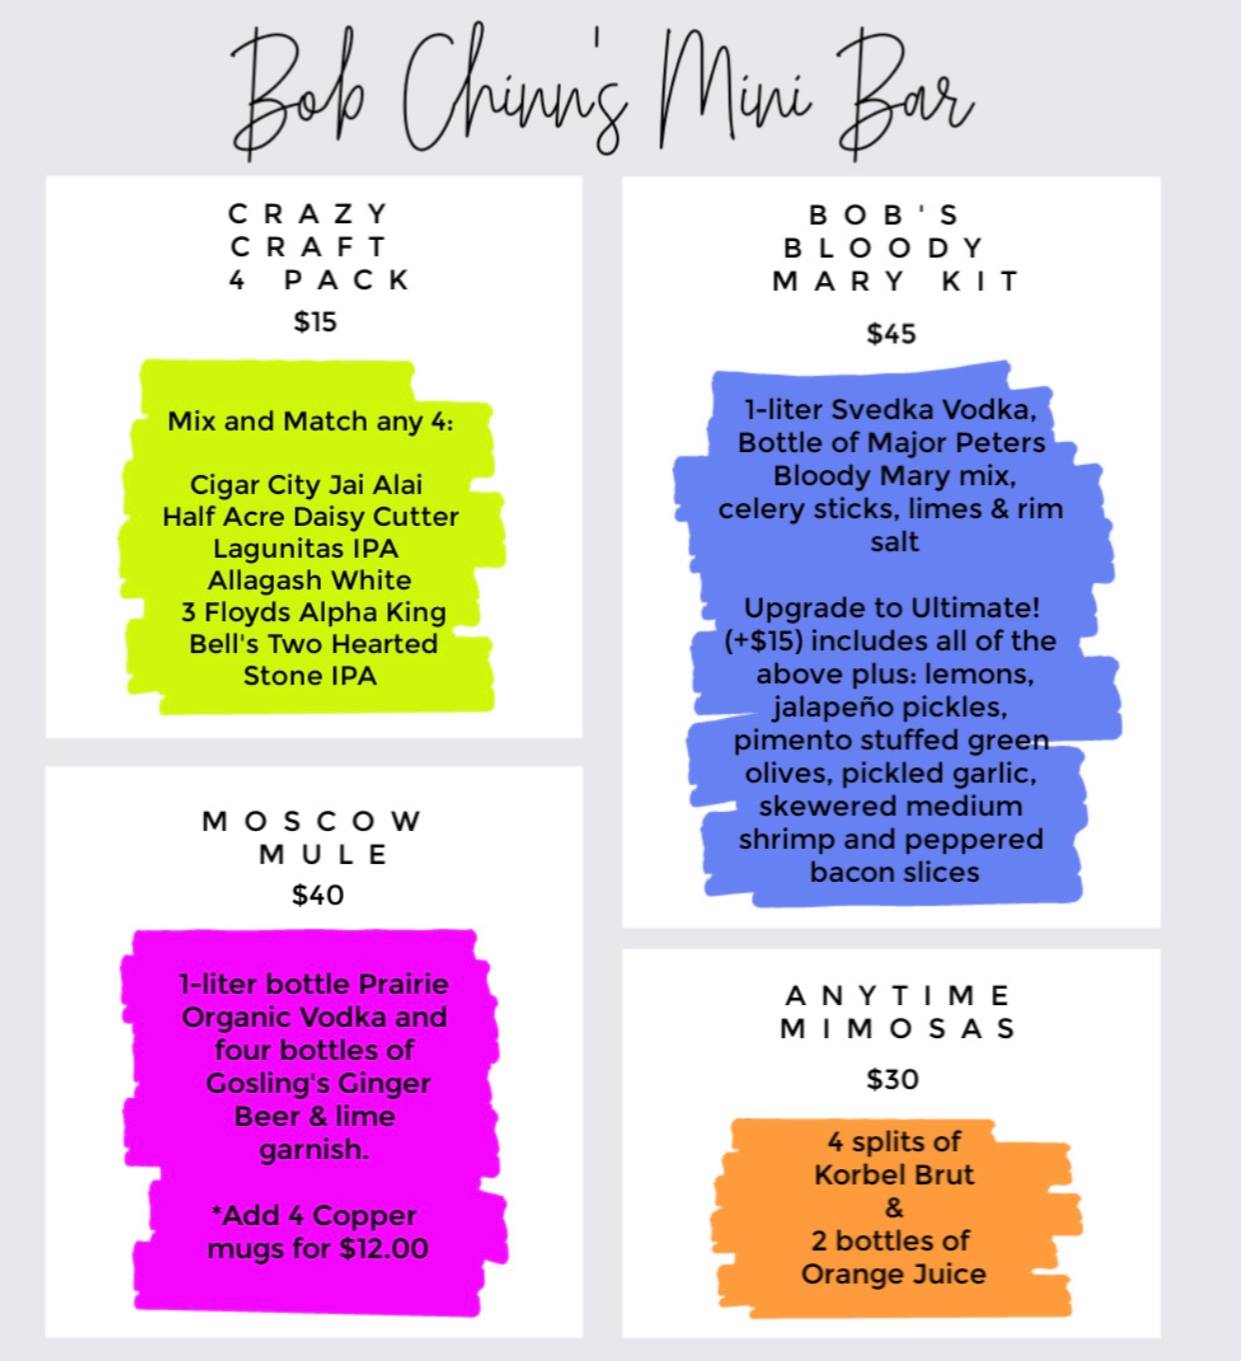 Bob Chinn's Mini Bar
CRAZY
CRAFT
4 PACK
$15
Mix and Match any 4:
Cigar City Jai Alai
Half Acre Daisy Cutter
Lagunitas IPA
Allagash White
3 Floyds Alpha King
Bell's Two Hearted
Stone IPA
BOB'S
BLOODY
MARY KIT
$45
1-liter Svedka Vodka,
Bottle of Major Peters
Bloody Mary mix,
celery sticks, limes & rim
salt
Upgrade to Ultimate!
(+$15) includes all of the
above plus: lemons,
jalapeño pickles,
pimento stuffed green
olives, pickled garlic,
skewered medium
shrimp and peppered
bacon slices
MOSCOW
MULE
$40
1-liter bottle Prairie
Organic Vodka and
four bottles of
Gosling's Ginger
Beer & lime
garnish.
*Add 4 Copper
mugs for $12.00
ANYTIME
MIMOSAS
$30
4 splits of
Korbel Brut
&
2 bottles of
Orange Juice